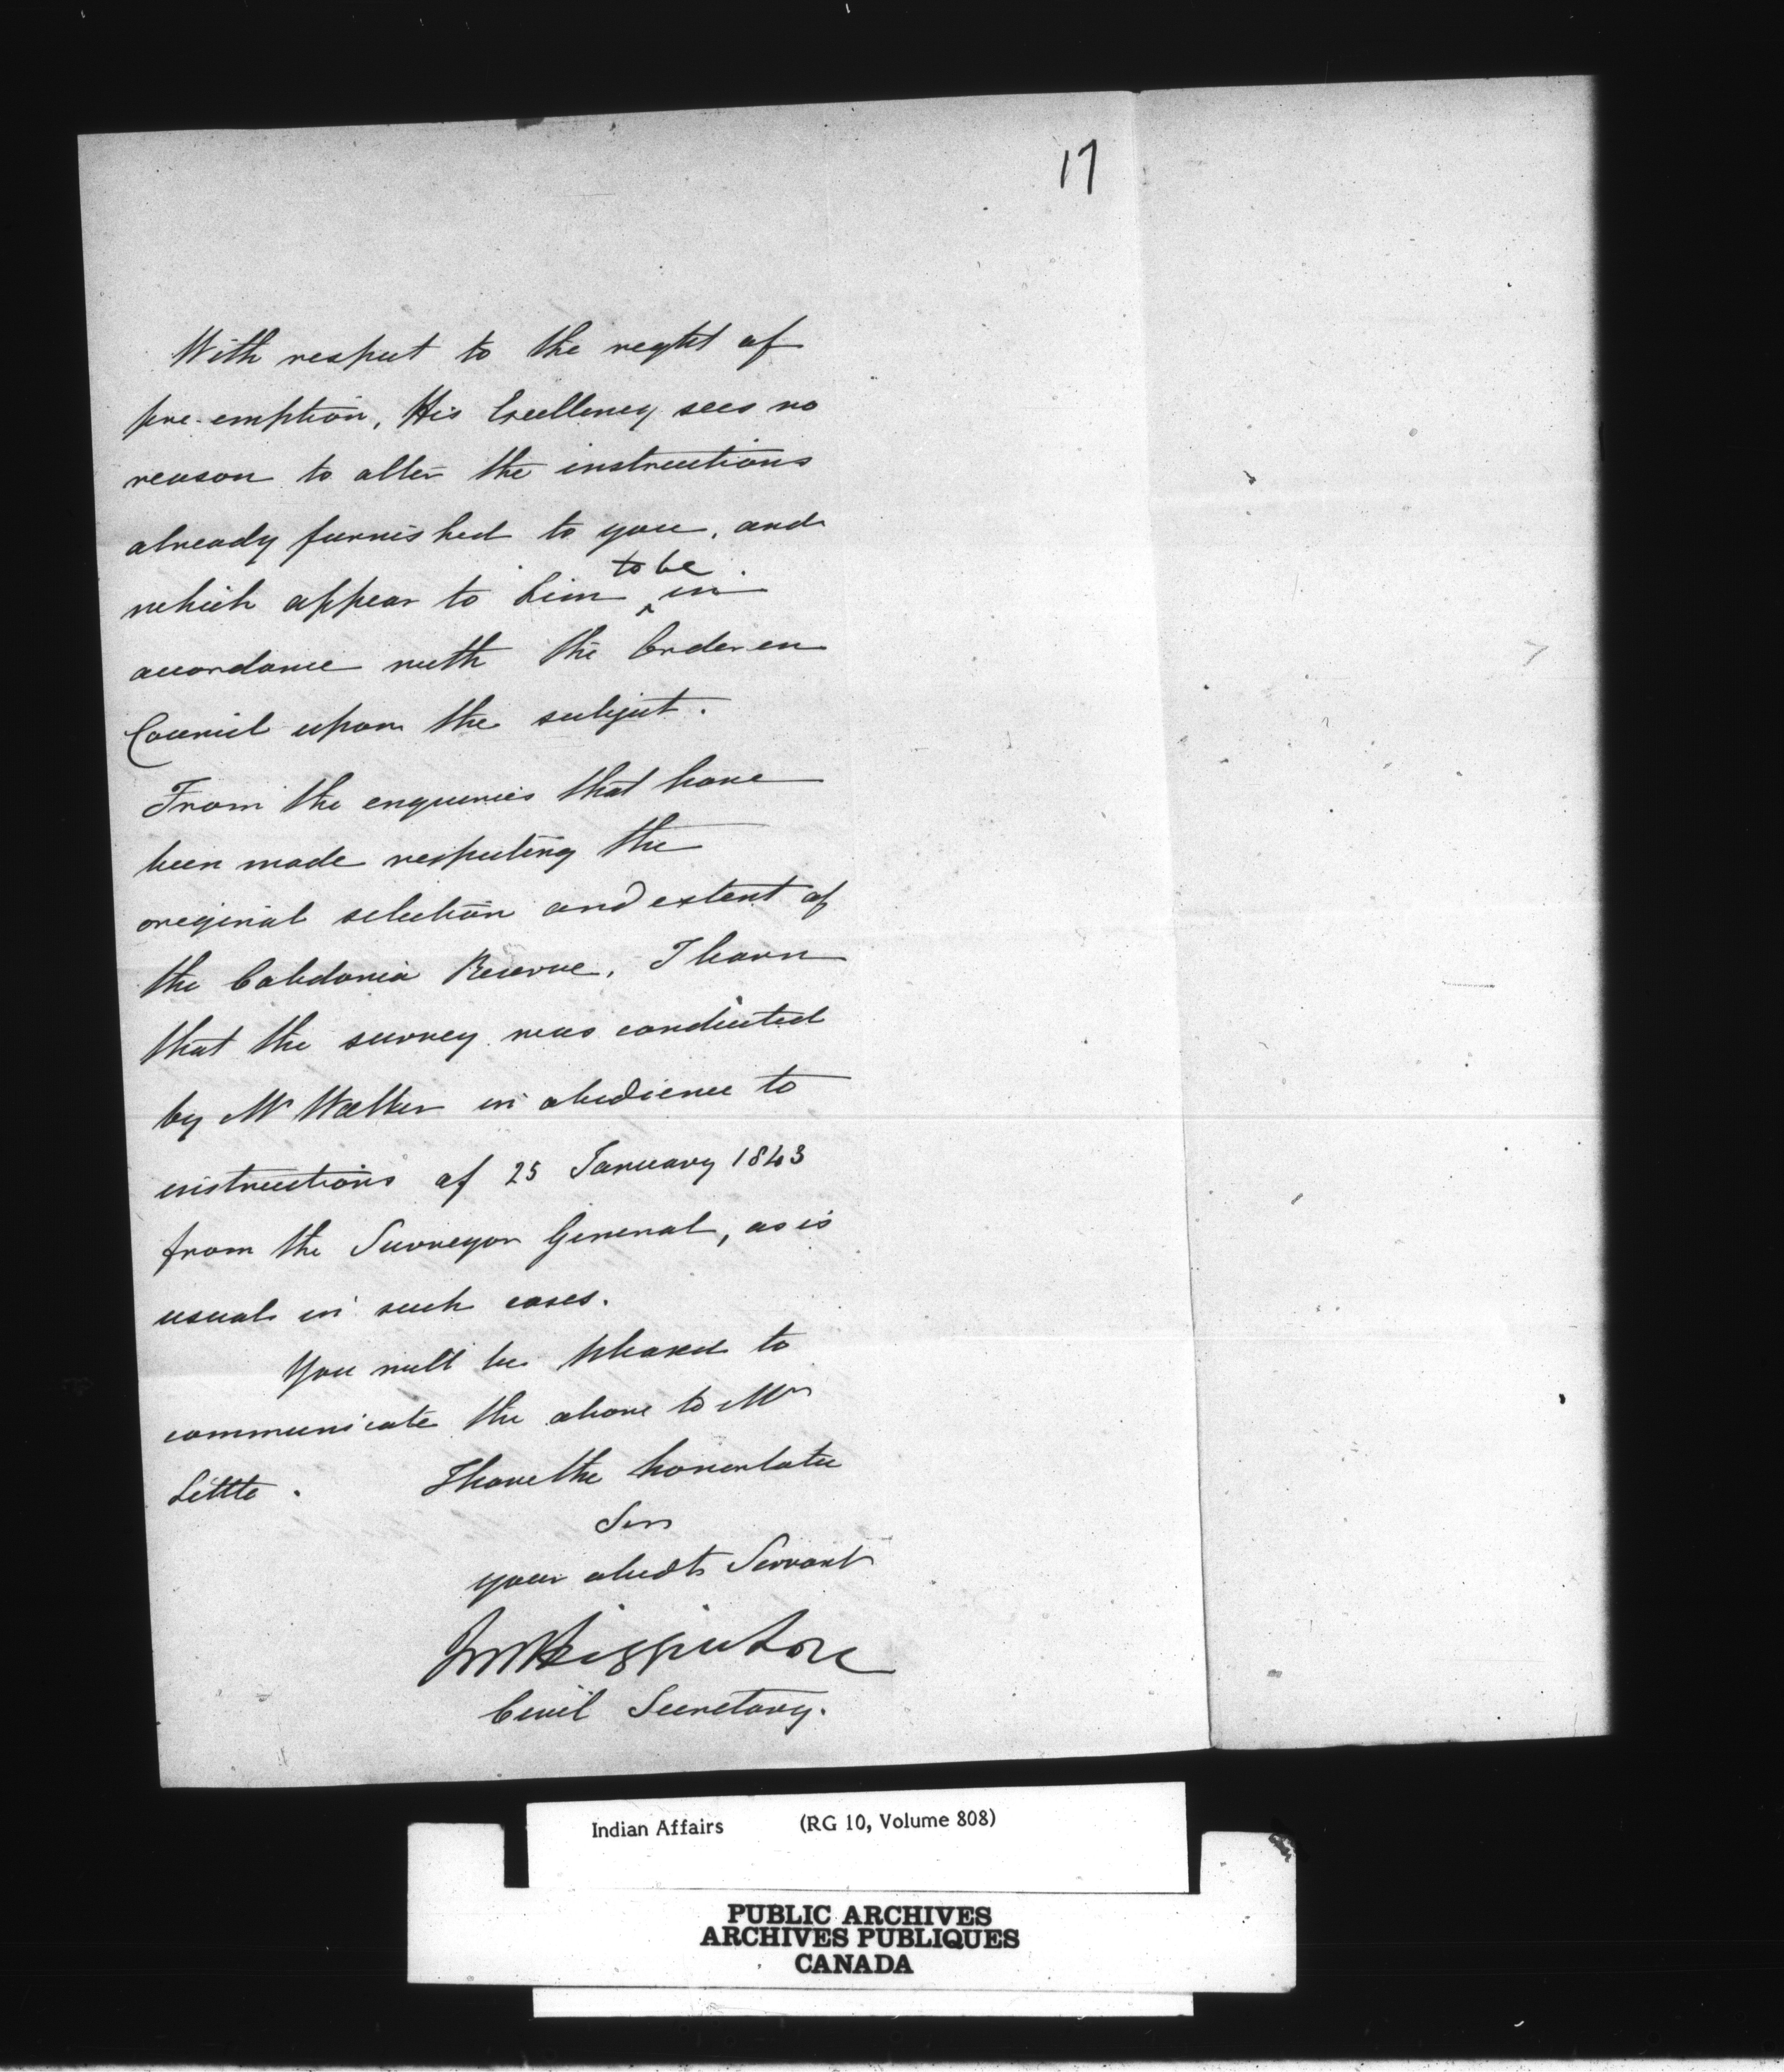 17
With respect to the right of
pre-emption, His Excellency sees no
reason to alter the instructions
already furnished to you, and
to be
which appear to him ^ in
accordance with the Order in
Council upon the subject.
From the enquiries that have
been made respecting the
original selection and extent of
the Caledonia Reserve, I learn
that the survey was conducted
by Mr Walker in obedience to
instructions of 25 January 1843
from the Surveyor General, as is
usual in such cases.
You will be pleased to
communicate the above to Mr
Little.
I have the honor to be
Sir
your obedt Servant
JM Higginson
Civil Secretary.
Indian Affairs (RG 10, Volume 808)
PUBLIC ARCHIVES
ARCHIVES PUBLIQUES
CANADA